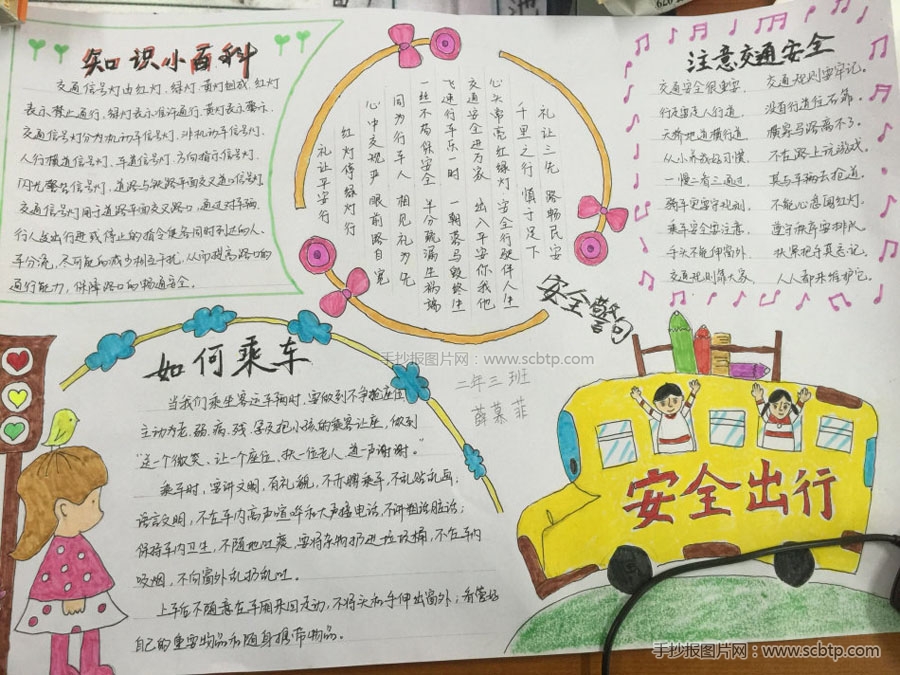 知识小百科
交通信号灯由红灯、绿灯、黄灯组成。红灯
表示禁止通行，绿灯表示准许通行，黄灯表示警示。
交通信号灯分为机动车信号灯、非机动车信号灯、
人行横道信号灯、车道信号灯、方向指示信号灯、
闪光警告信号灯、道路与铁路平面交叉道口信号灯。
交通信号灯用于道路平面交叉路口，通过对车辆、
行人发出行进或停止的指令使各同时到达的人、
车分流，尽可能的减少相互干扰，从而提高路口的
通行能力，保障路口的畅通安全。
礼让三先 路畅民安
千里之行 慎于足下
心头常亮红绿灯 安全行驶伴人生
交通安全进万家 出入平安你我他
飞速行车乐一时 一朝落马毁终生
一丝不苟保安全 半分疏漏生祸端
同为行车人 相见礼为先
心中交规严 眼前路自宽
红灯停绿灯行
礼让平安行
安全警句
注意交通安全
交通安全很重要， 交通规则要牢记。
行走要走人行道， 没有行道往右靠。
天桥地道横行道， 横穿马路离不了。
从小养成好习惯， 不在路上玩游戏。
一慢二看三通过， 莫与车辆去抢道。
骑车更要守规则， 不能心急闯红灯。
乘车安全要注意， 遵守秩序要排队。
手头不能伸窗外， 扶紧把手莫忘记。
交通规则靠大家， 人人都来维护它。
手抄报图片网：www.scbtp.com
如何乘车
当我们乘坐客运车辆时，要做到不争抢座位，
主动为老、弱、病、残、孕及抱小孩的乘客让座，做到
“送一个微笑、让一个座位、扶一位老人、道一声谢谢。”
乘车时，要讲文明，有礼貌，不赤膊乘车，不乱贴乱画；
语言文明，不在车内高声喧哗和大声接电话，不讲粗话脏话；
保持车内卫生，不随地吐痰，要将杂物扔进垃圾桶，不在车内
吸烟，不向窗外乱扔乱吐。
上车后不随意在车厢来回走动，不将头和手伸出窗外；看管好
自己的重要物品和随身携带物品。
二年三班
薛慕菲
安全出行
手抄报图片网：www.scbtp.com